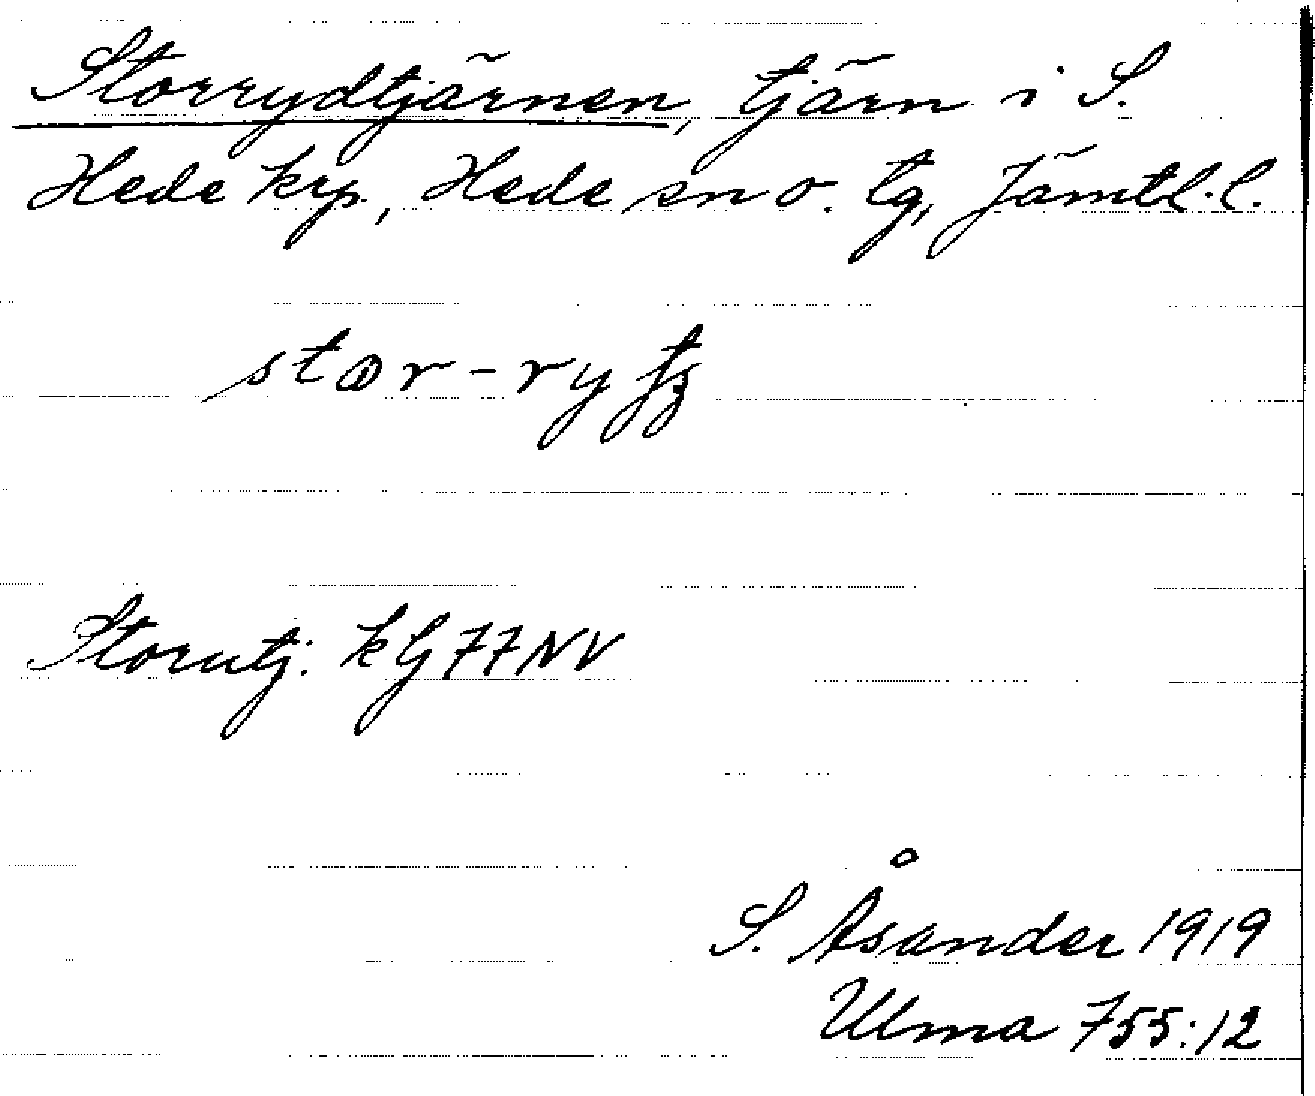 Storrydtjärnen, tjärn i S.
Hede krp., Hede sn o. tg, Jämtl. l.
Storutj. kG77NV
S. Åsander 1919
Ulma 755:12